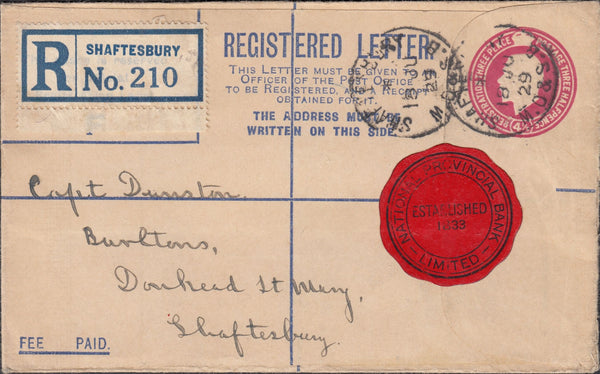 R SHAFTESBURY
No. 210
REGISTERED LETTER
THIS LETTER MUST BE GIVEN TO
OFFICER OF THE POST OFFICE
TO BE REGISTERED, AND A RECEIPT
OBTAINED FOR IT.
THE ADDRESS MUST BE
WRITTEN ON THIS SIDE.
18 JU
29
18 JU
29
REGISTRATION THREE PENCE
POSTAGE THREE HALFPENCE
NATIONAL PROVINCIAL BANK
ESTABLISHED
1833
— LIMITED —
Capt Dunston.
Burltons,
Donhead St Mary,
Shaftesbury.
FEE PAID.